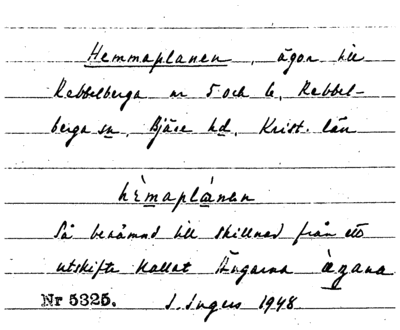 Hemmaplanen, ägor till
Rebbelberga nr 5 och 6, Rebbel-
berga sn, Bjäre hd, Krist. län
hèmaplánen
Så benämnd till skillnad från ett
utskifte kallat Ängarna
Nr 5325. S. Ingers 1948